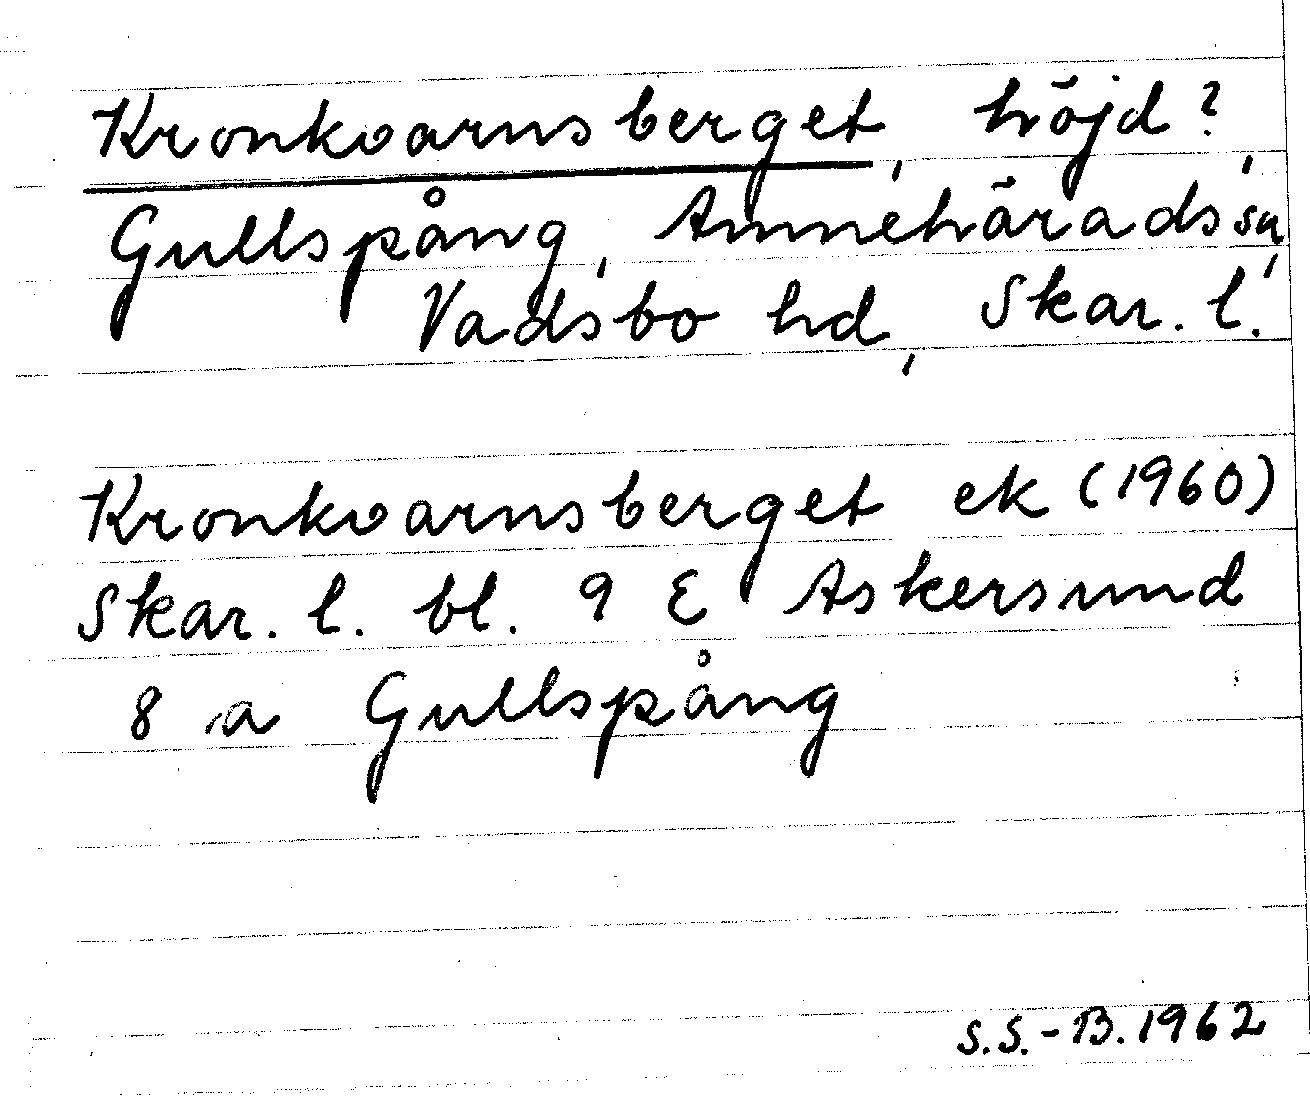 Kronkvarnsberget, höjd?,
Gullspång, Amnehärads sn,
Vadsbo hd, Skar. l.
Kronkvarnsberget ek (1960)
Skar. l. bl. 9 E Askersund
8 a Gullspång
S.S.-B. 1962